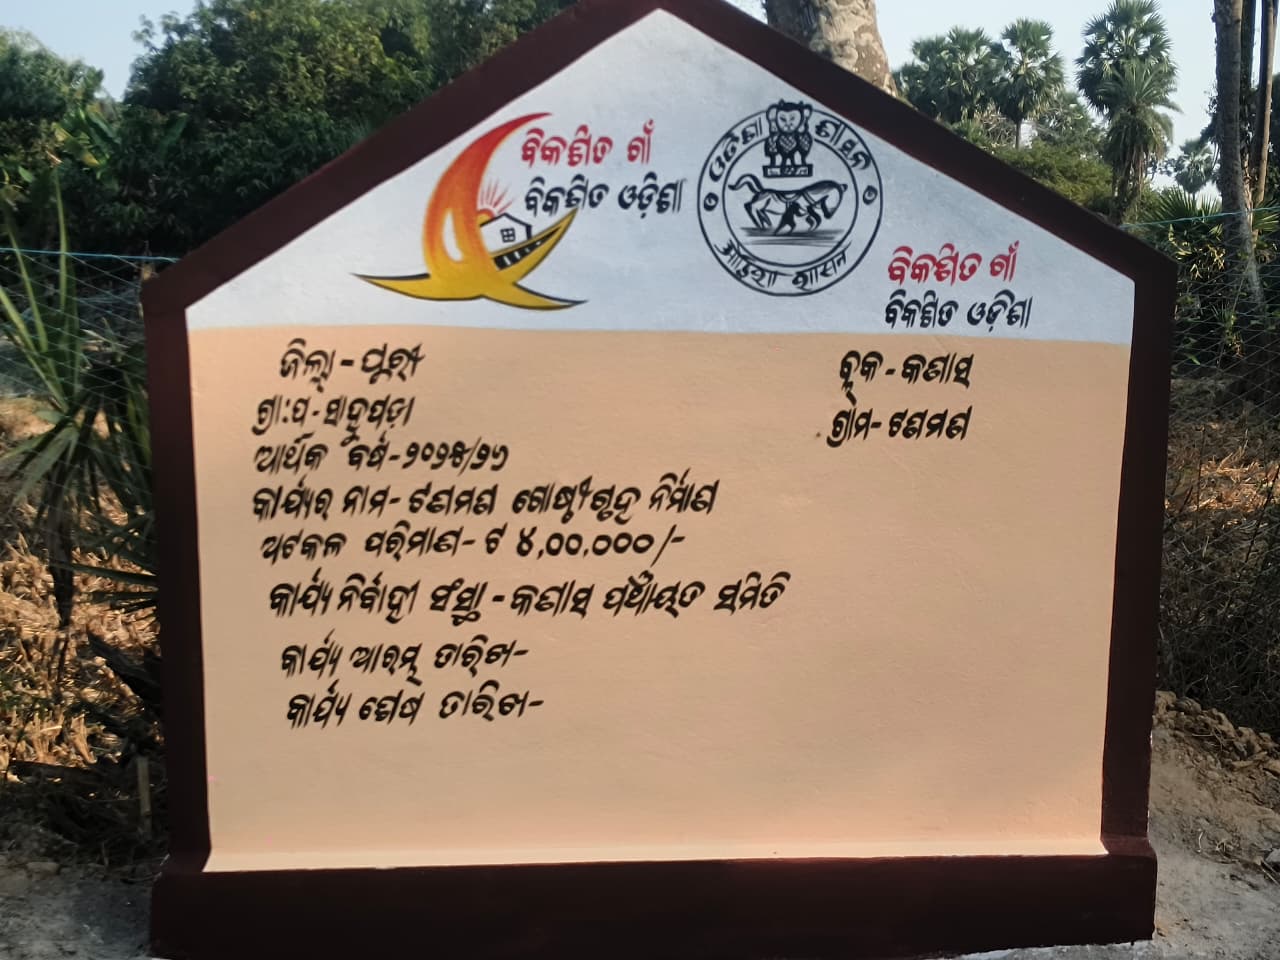 ବିକଶିତ ଗାଁ
ବିକଶିତ ଓଡ଼ିଶା
ଓଡିଶା ଶାସନ
ओड़िशा शासन
ବିକଶିତ ଗାଁ
ବିକଶିତ ଓଡ଼ିଶା
ଜିଲ୍ଲା - ପୁରୀ
ବ୍ଲକ - କଣାସ
ଗ୍ରା:ପ - ସାଦୁପଡ଼ା
ଗ୍ରାମ - ଟଣମଣ
ଆର୍ଥିକ ବର୍ଷ - ୨୦୨୫/୨୬
କାର୍ଯ୍ୟର ନାମ - ଟଣମଣ ଗୋଷ୍ଠୀଗୃହ ନିର୍ମାଣ
ଅଟକଳ ପରିମାଣ - ଟ ୪,୦୦,୦୦୦/-
କାର୍ଯ୍ୟ ନିର୍ବାହୀ ସଂସ୍ଥା - କଣାସ ପଞ୍ଚାୟତ ସମିତି
କାର୍ଯ୍ୟ ଆରମ୍ଭ ତାରିଖ -
କାର୍ଯ୍ୟ ଶେଷ ତାରିଖ -